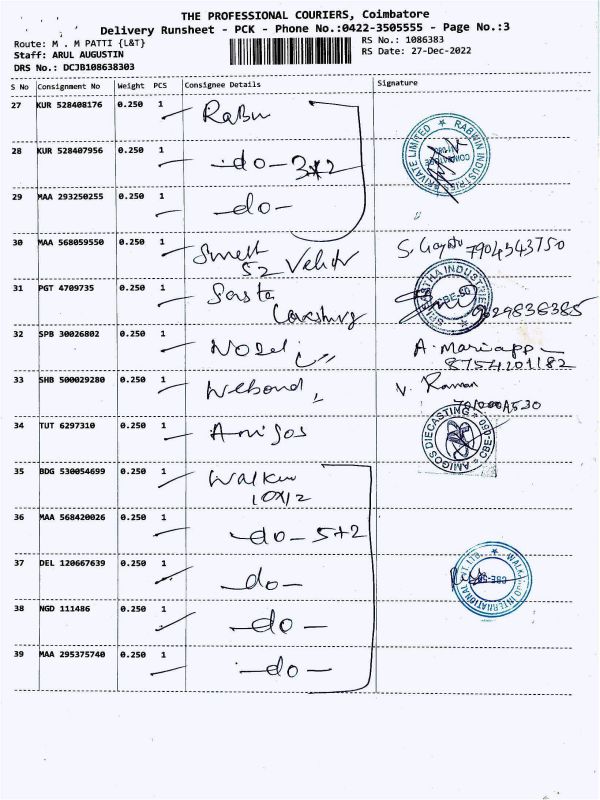 THE PROFESSIONAL COURIERS, Coimbatore
Delivery Runsheet - PCK - Phone No.:0422-3505555 - Page No.:3
Route: M . M PATTI {L&T}
RS No.: 1086383
Staff: ARUL AUGUSTIN
RS Date: 27-Dec-2022
DRS No.: DCJB108638303
S No Consignment No Weight PCS Consignee Details Signature
27 KUR 528408176 0.250 1 Rabw
28 KUR 528407956 0.250 1 -do- 3x2
PRIVATE LIMITED ★ RABWIN INDUSTRIES
COIMBATORE
29 MAA 293250255 0.250 1 -do-
30 MAA 568059550 0.250 1 7904543750
52
31 PGT 4709735 0.250 1
INDUSTRIES
CBE-50
9629836385
32 SPB 30026802 0.250 1 Nosel A. Mariapp
8754201182
33 SHB 500029280 0.250 1 Webond V. Raman
34 TUT 6297310 0.250 1 Amigos
AMIGOS DIECASTING ★ CBE-
35 BDG 530054699 0.250 1 Walker
10x12
36 MAA 568420026 0.250 1 -do- 5+2
37 DEL 120667639 0.250 1 -do-
INTERNATIONAL PVT LTD. ★
38 NGD 111486 0.250 1 -do-
39 MAA 295375740 0.250 1 -do-